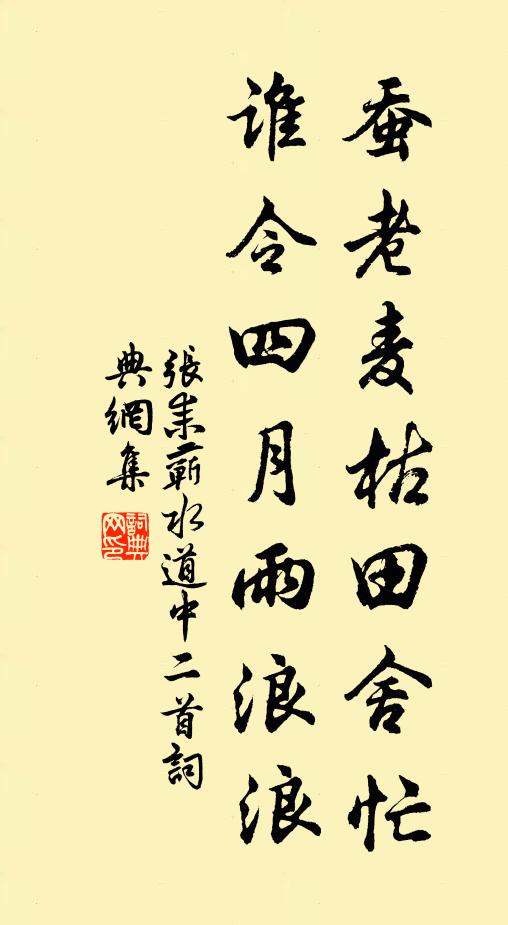 蚕老麦枯田舍忙
谁令四月雨浪浪
張耒蘄水道中二首詞
典網集
詞典網印